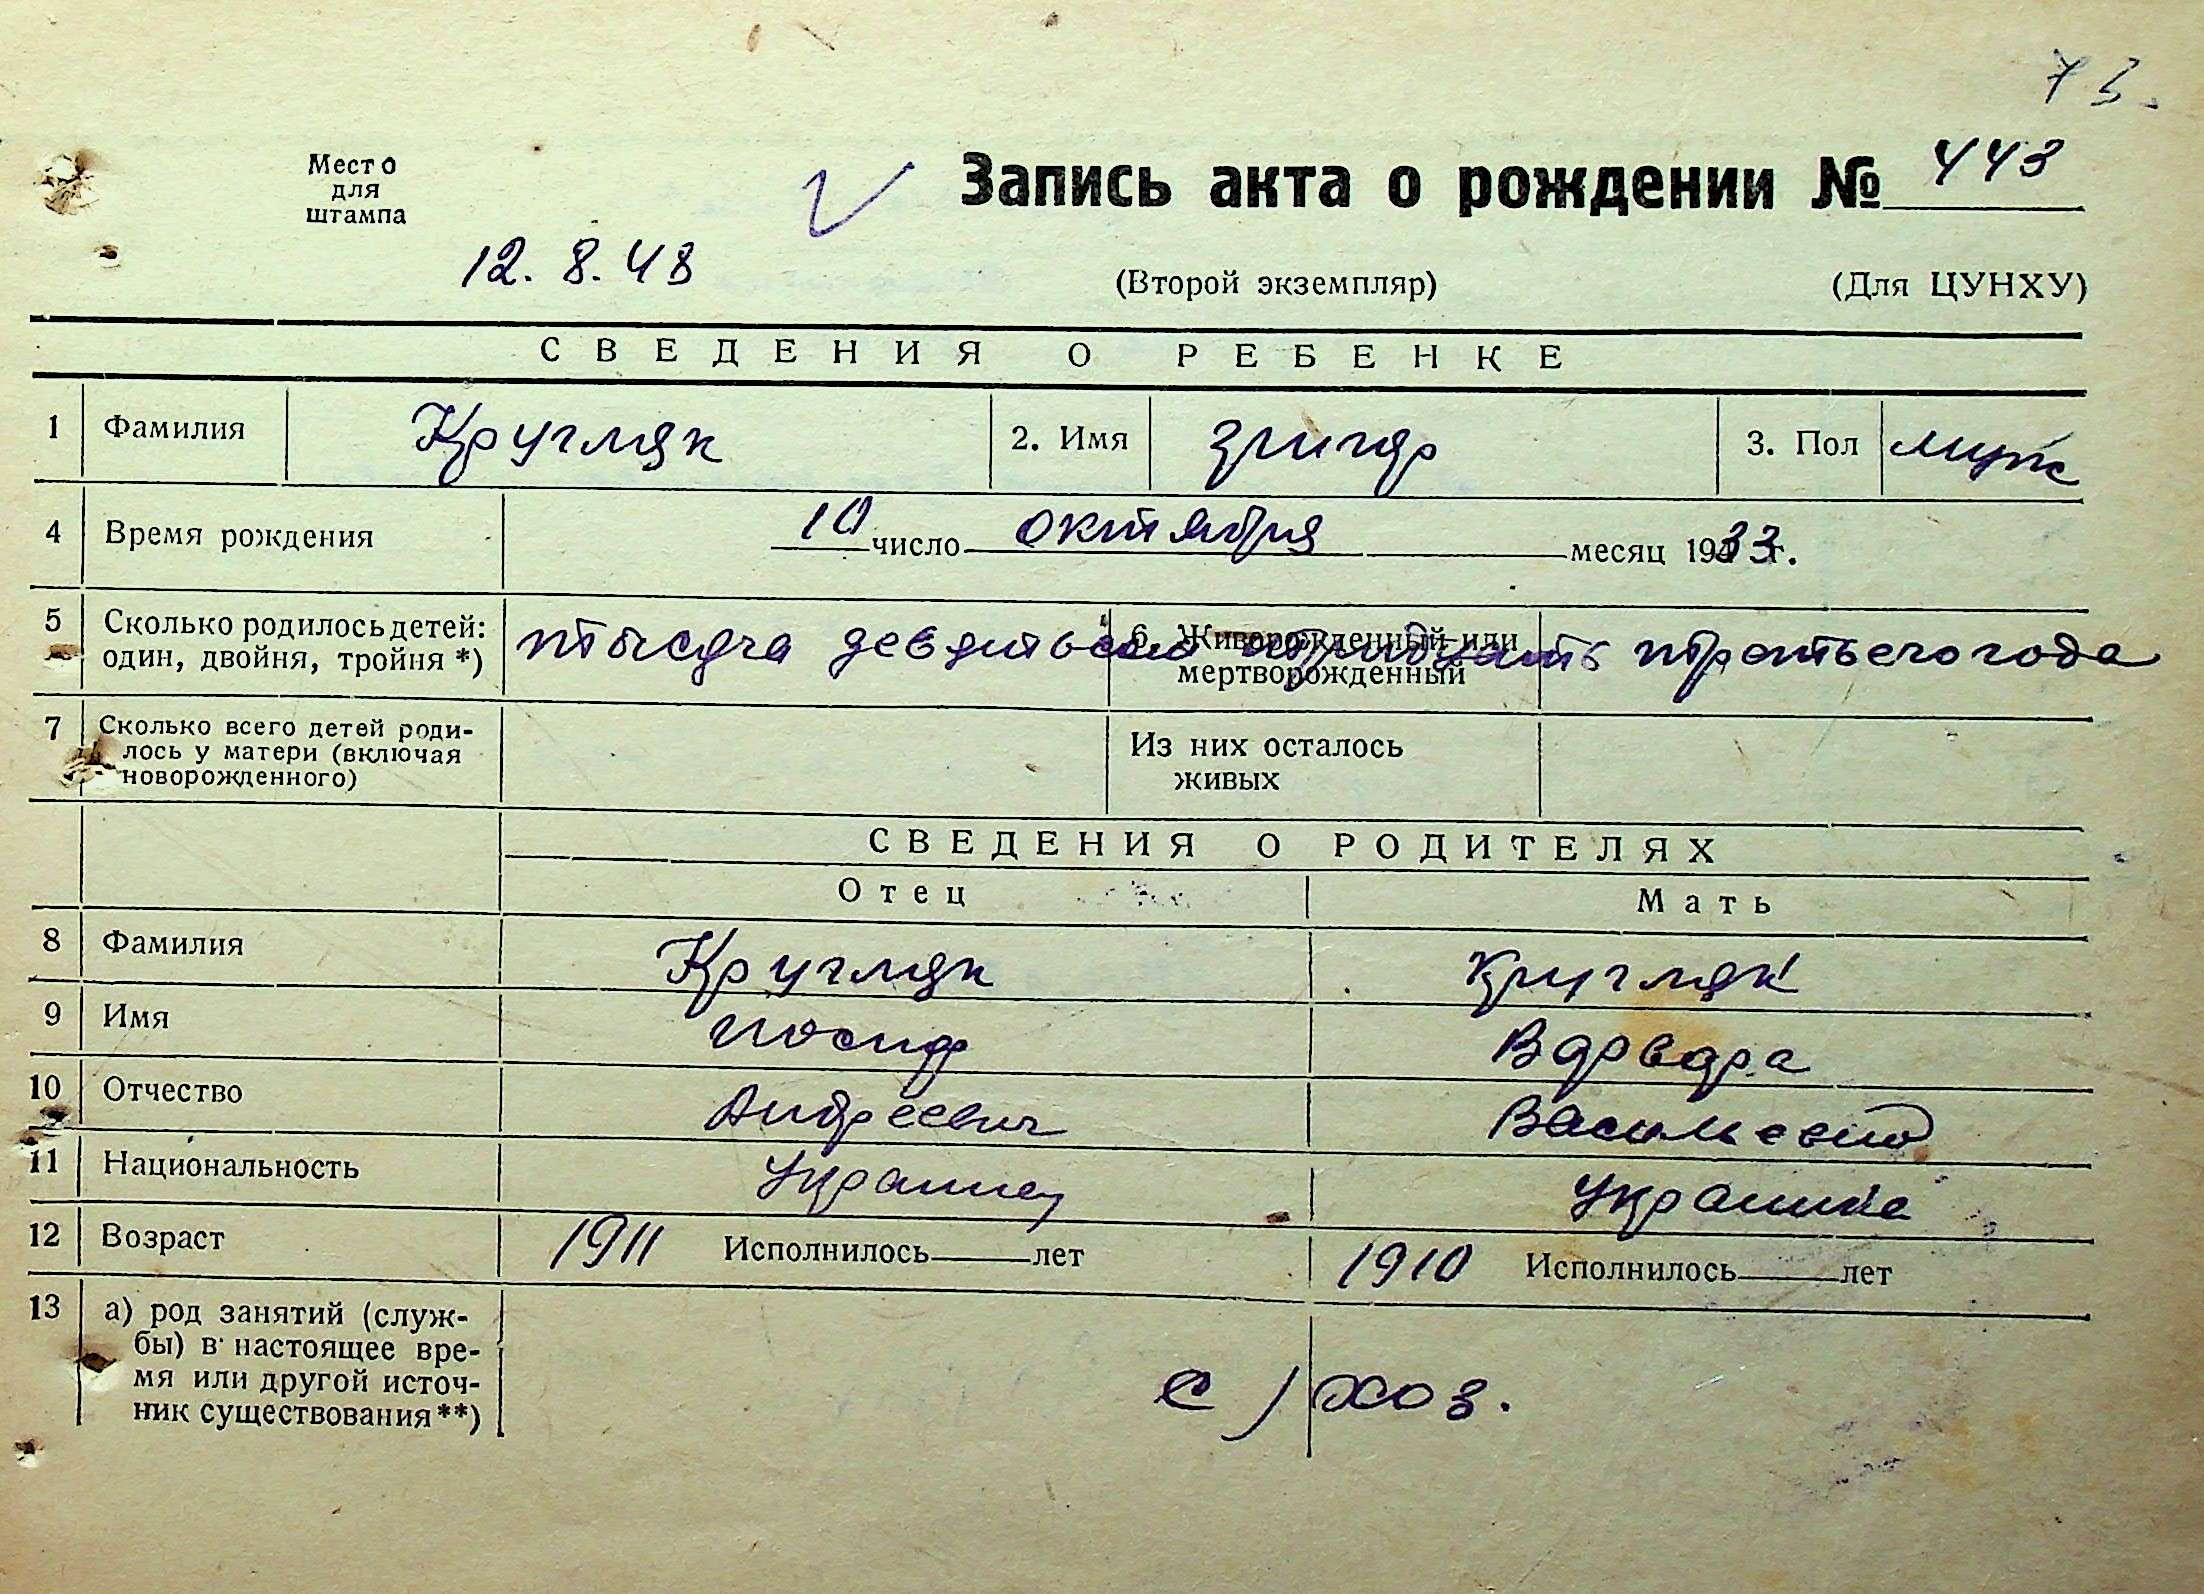 73.
Место
для
штампа
Запись акта о рождении № 443
12. 8. 48
(Второй экземпляр) (Для ЦУНХУ)
СВЕДЕНИЯ О РЕБЕНКЕ
1 Фамилия Кругляк 2. Имя 3. Пол муж
4 Время рождения 10 число октября месяц 1933 г.
5 Сколько родилось детей: один, двойня, тройня *) 6. Живорожденный или мертворожденный
тысяча девятьсот тридцать третьего года
7 Сколько всего детей родилось у матери (включая новорожденного) Из них осталось живых
СВЕДЕНИЯ О РОДИТЕЛЯХ
Отец Мать
8 Фамилия Кругляк Кругляк
9 Имя Иосиф Варвара
10 Отчество Андреевич Васильевна
11 Национальность Украинец Украинка
12 Возраст 1911 Исполнилось лет 1910 Исполнилось лет
13 а) род занятий (служ-
бы) в настоящее вре-
мя или другой источ-
ник существования**)
с/хоз.